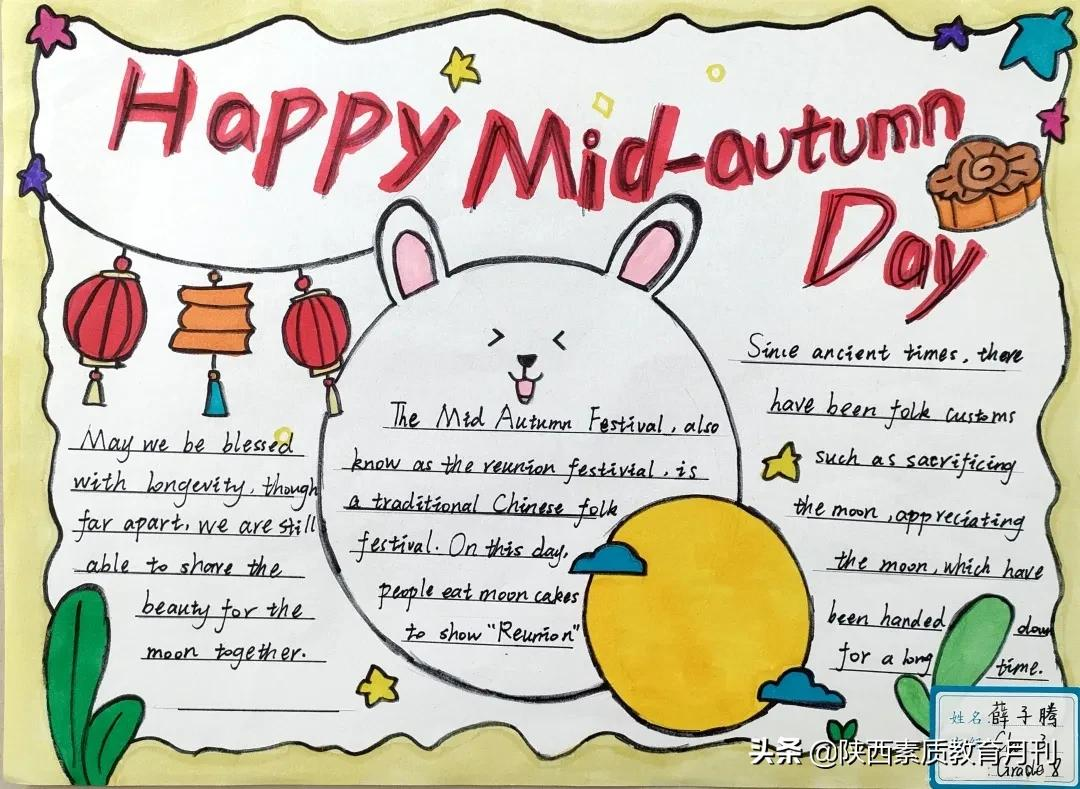 Happy Mid-autumn
Day
May we be blessed
with longevity, though
far apart, we are still
able to share the
beauty for the
moon together.
The Mid Autumn Festival, also
know as the reunion festivial, is
a traditional Chinese folk
festival. On this day,
people eat moon cakes
to show "Reunion"
Since ancient times, there
have been folk customs
such as sacrificing
the moon, appreciating
the moon, which have
been handed down
for a long time.
姓名: 薛子腾
Grade 8
头条 @陕西素质教育月刊